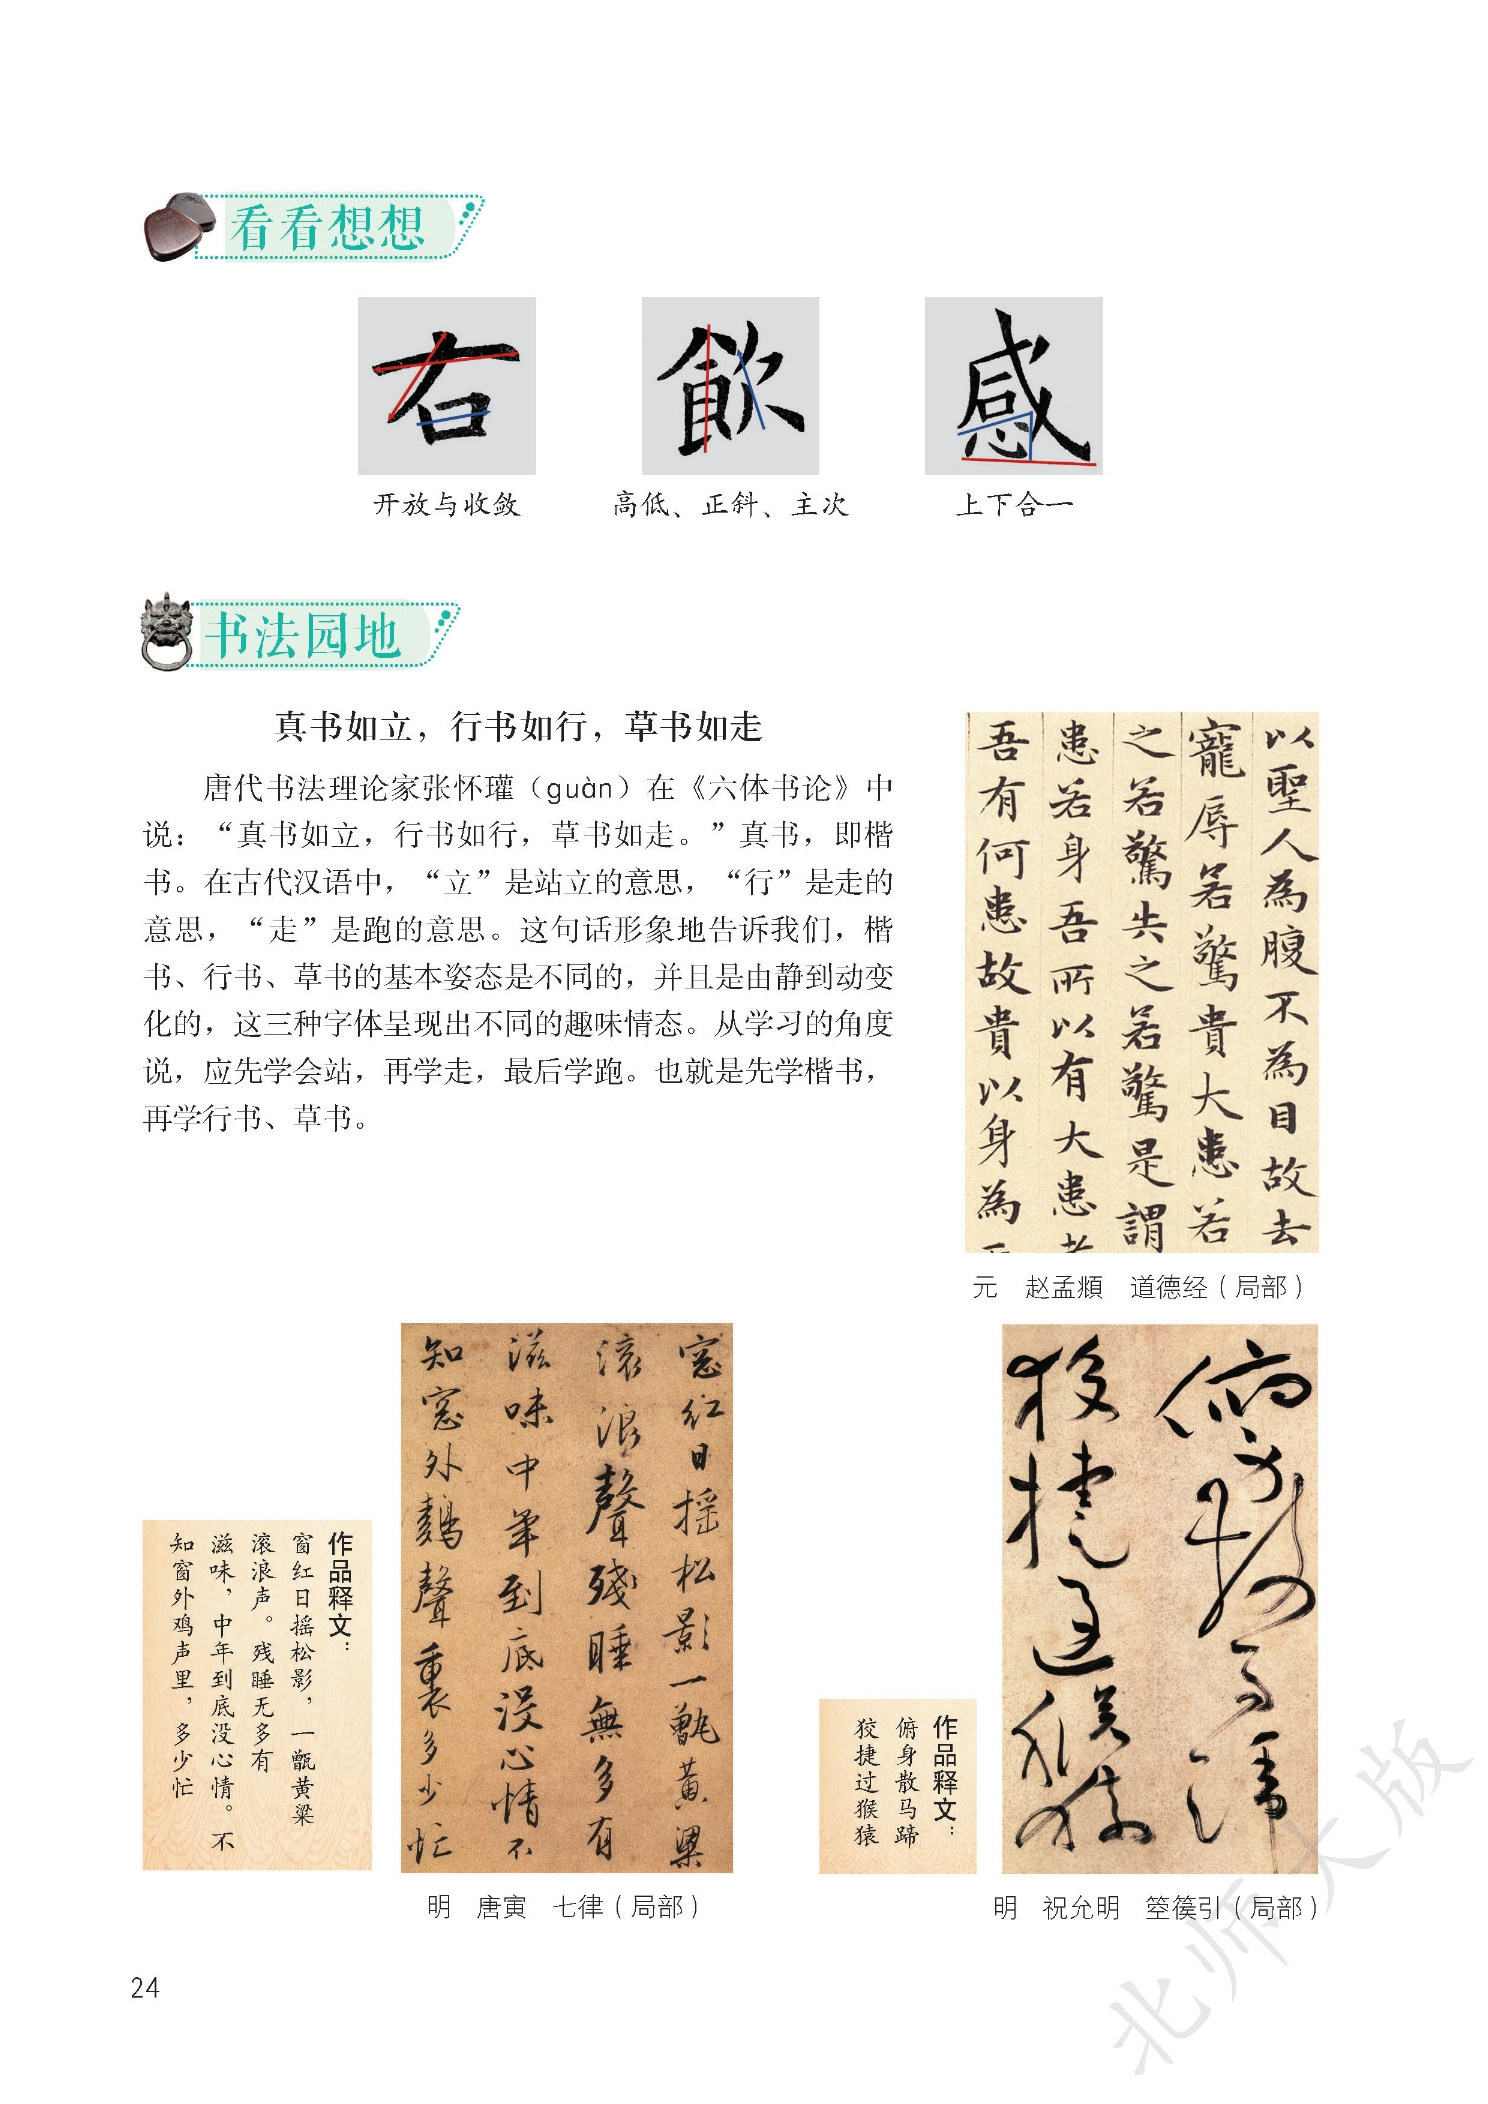 看看想想
右
飲
感
开放与收敛
高低、正斜、主次
上下合一
书法园地
真书如立，行书如行，草书如走
唐代书法理论家张怀瓘（guàn）在《六体书论》中
说：“真书如立，行书如行，草书如走。”真书，即楷
书。在古代汉语中，“立”是站立的意思，“行”是走的
意思，“走”是跑的意思。这句话形象地告诉我们，楷
书、行书、草书的基本姿态是不同的，并且是由静到动变
化的，这三种字体呈现出不同的趣味情态。从学习的角度
说，应先学会站，再学走，最后学跑。也就是先学楷书，
再学行书、草书。
以聖人為腹不為目故去
寵辱若驚貴大患若
之若驚失之若驚是謂
患若身吾所以有大患者
吾有何患故貴以身為
元 赵孟頫 道德经（局部）
窓红日摇松影一甑黄粱
滚浪聲殘睡無多有
滋味中年到底没心情不
知窓外鷄聲裏多少忙
作品释文：
窗红日摇松影，一甑黄粱
滚浪声。残睡无多有
滋味，中年到底没心情。不
知窗外鸡声里，多少忙
明 唐寅 七律（局部）
俯身散马蹄
狡捷过猴猿
作品释文：
俯身散马蹄
狡捷过猴猿
明 祝允明 箜篌引（局部）
24
北师大版